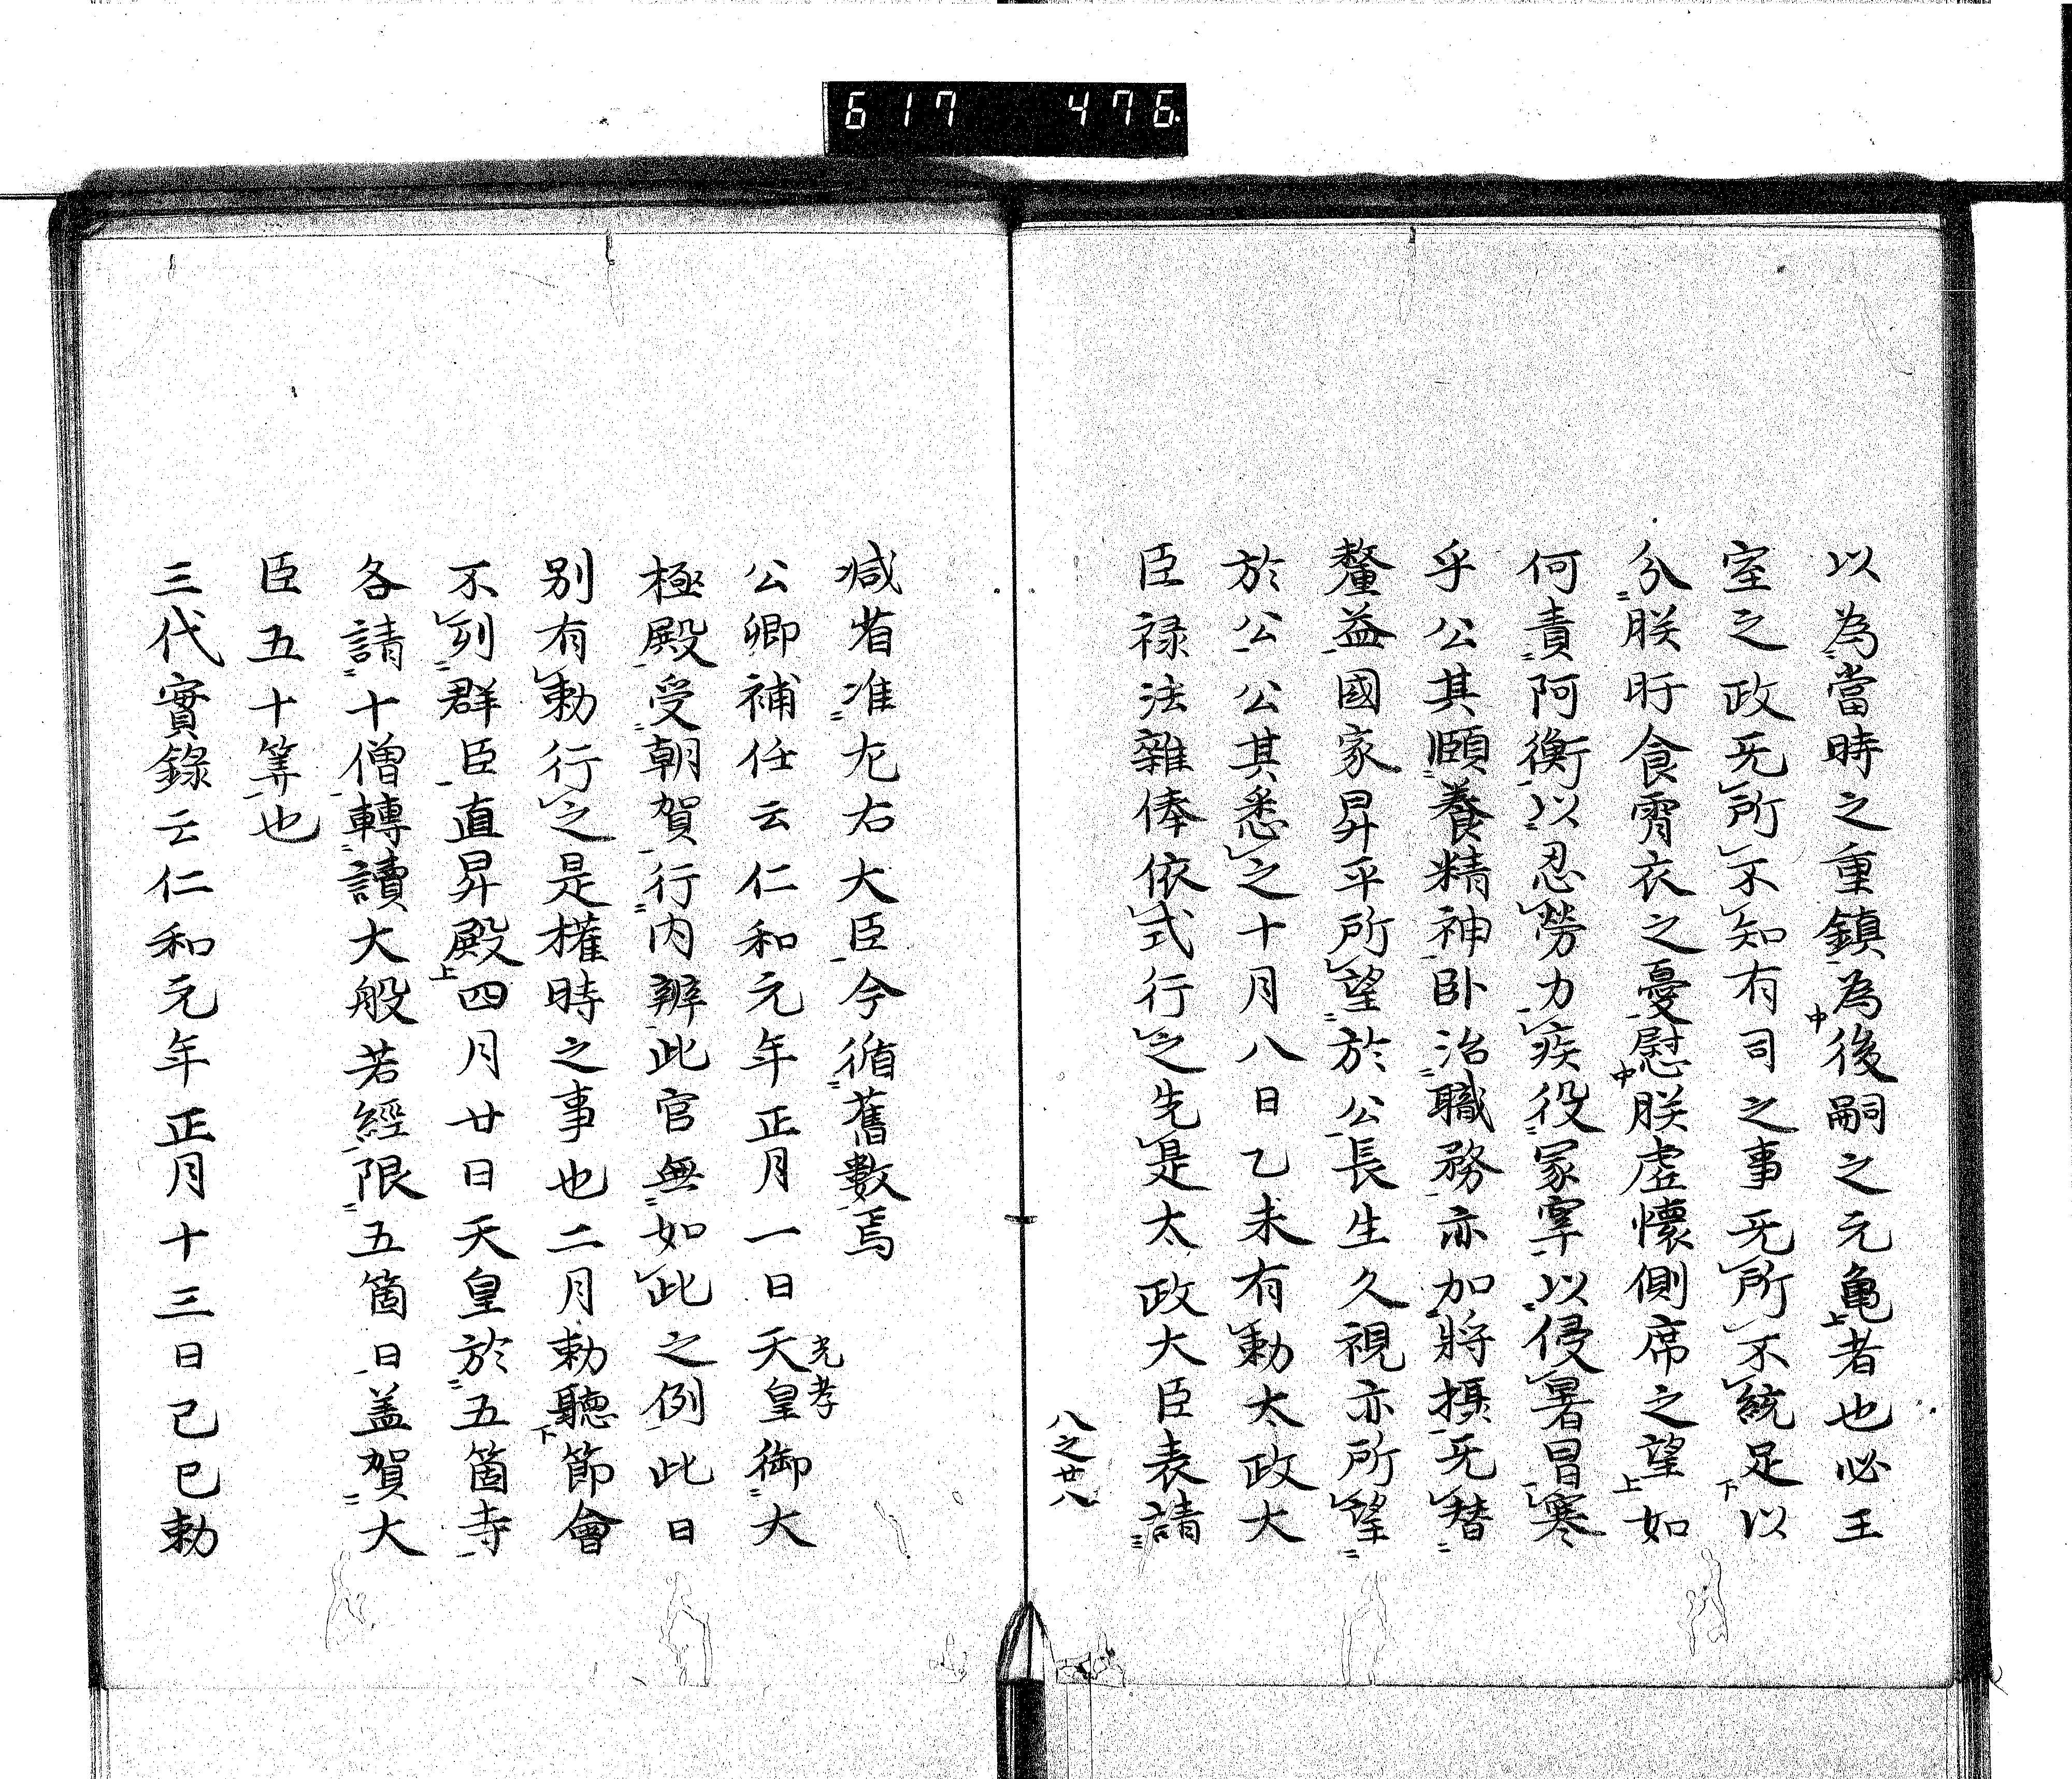 617 476
以為當時之重鎮為後嗣之元亀者也必王
室之政无所不知有司之事无所不統足以
分朕旰食霄衣之憂慰朕虚懷側席之望如
何責阿衡以忍勞力疾役冢宰以侵暑冒寒
乎公其頤養精神卧治職務亦加將攝无替
釐益國家昇平所望於公長生久視亦所望
於公公其悉之十月八日乙未有勅太政大
臣禄法雜俸依式行之先是太政大臣表請
八之廿八
減省准左右大臣今循舊數焉
公卿補任云仁和元年正月一日天皇御大
光孝
極殿受朝賀行内辨此官無如此之例此日
別有勅行之是權時之事也二月勅聽節會
不列群臣直昇殿四月廿日天皇於五箇寺
各請十僧轉讀大般若經限五箇日盖賀大
臣五十筭也
三代實錄云仁和元年正月十三日己巳勅